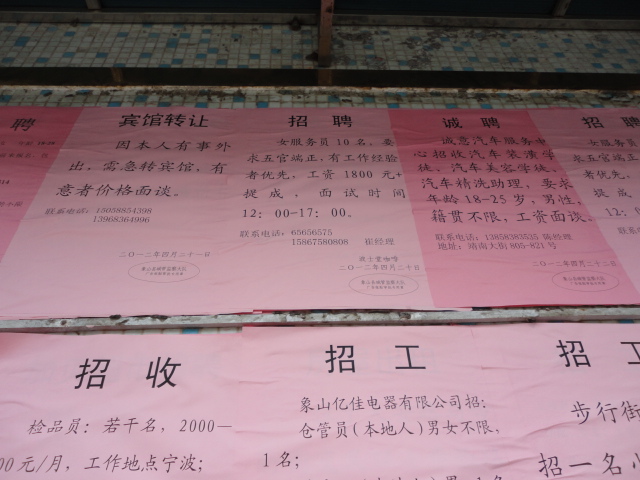 聘
宾馆转让
因本人有事外
出，需急转宾馆，有
意者价格面谈。
联系电话：15058854398
13968364996
二〇一二年四月二十一日
招聘
女服务员10名，要
求五官端正，有工作经验
者优先，工资1800元+
提成，面试时间
12：00-17：00。
联系电话：65656575
15867580808 崔经理
二〇一二年四月二十日
诚聘
诚意汽车服务中
心招收汽车装潢学
徒，汽车美容学徒，
汽车精洗助理，要求
年龄18-25岁，男性，
籍贯不限，工资面谈。
联系电话：13858383535 陈经理
地址：靖南大街805-821号
二〇一二年四月二十二日
招聘
女服务员
求五官端正
者优先，
提成，
12：0
联系电话：
招收
检品员：若干名，2000—
00元/月，工作地点宁波；
招工
象山亿佳电器有限公司招：
仓管员(本地人)男女不限，
1名；
招工
步行街
招一名小